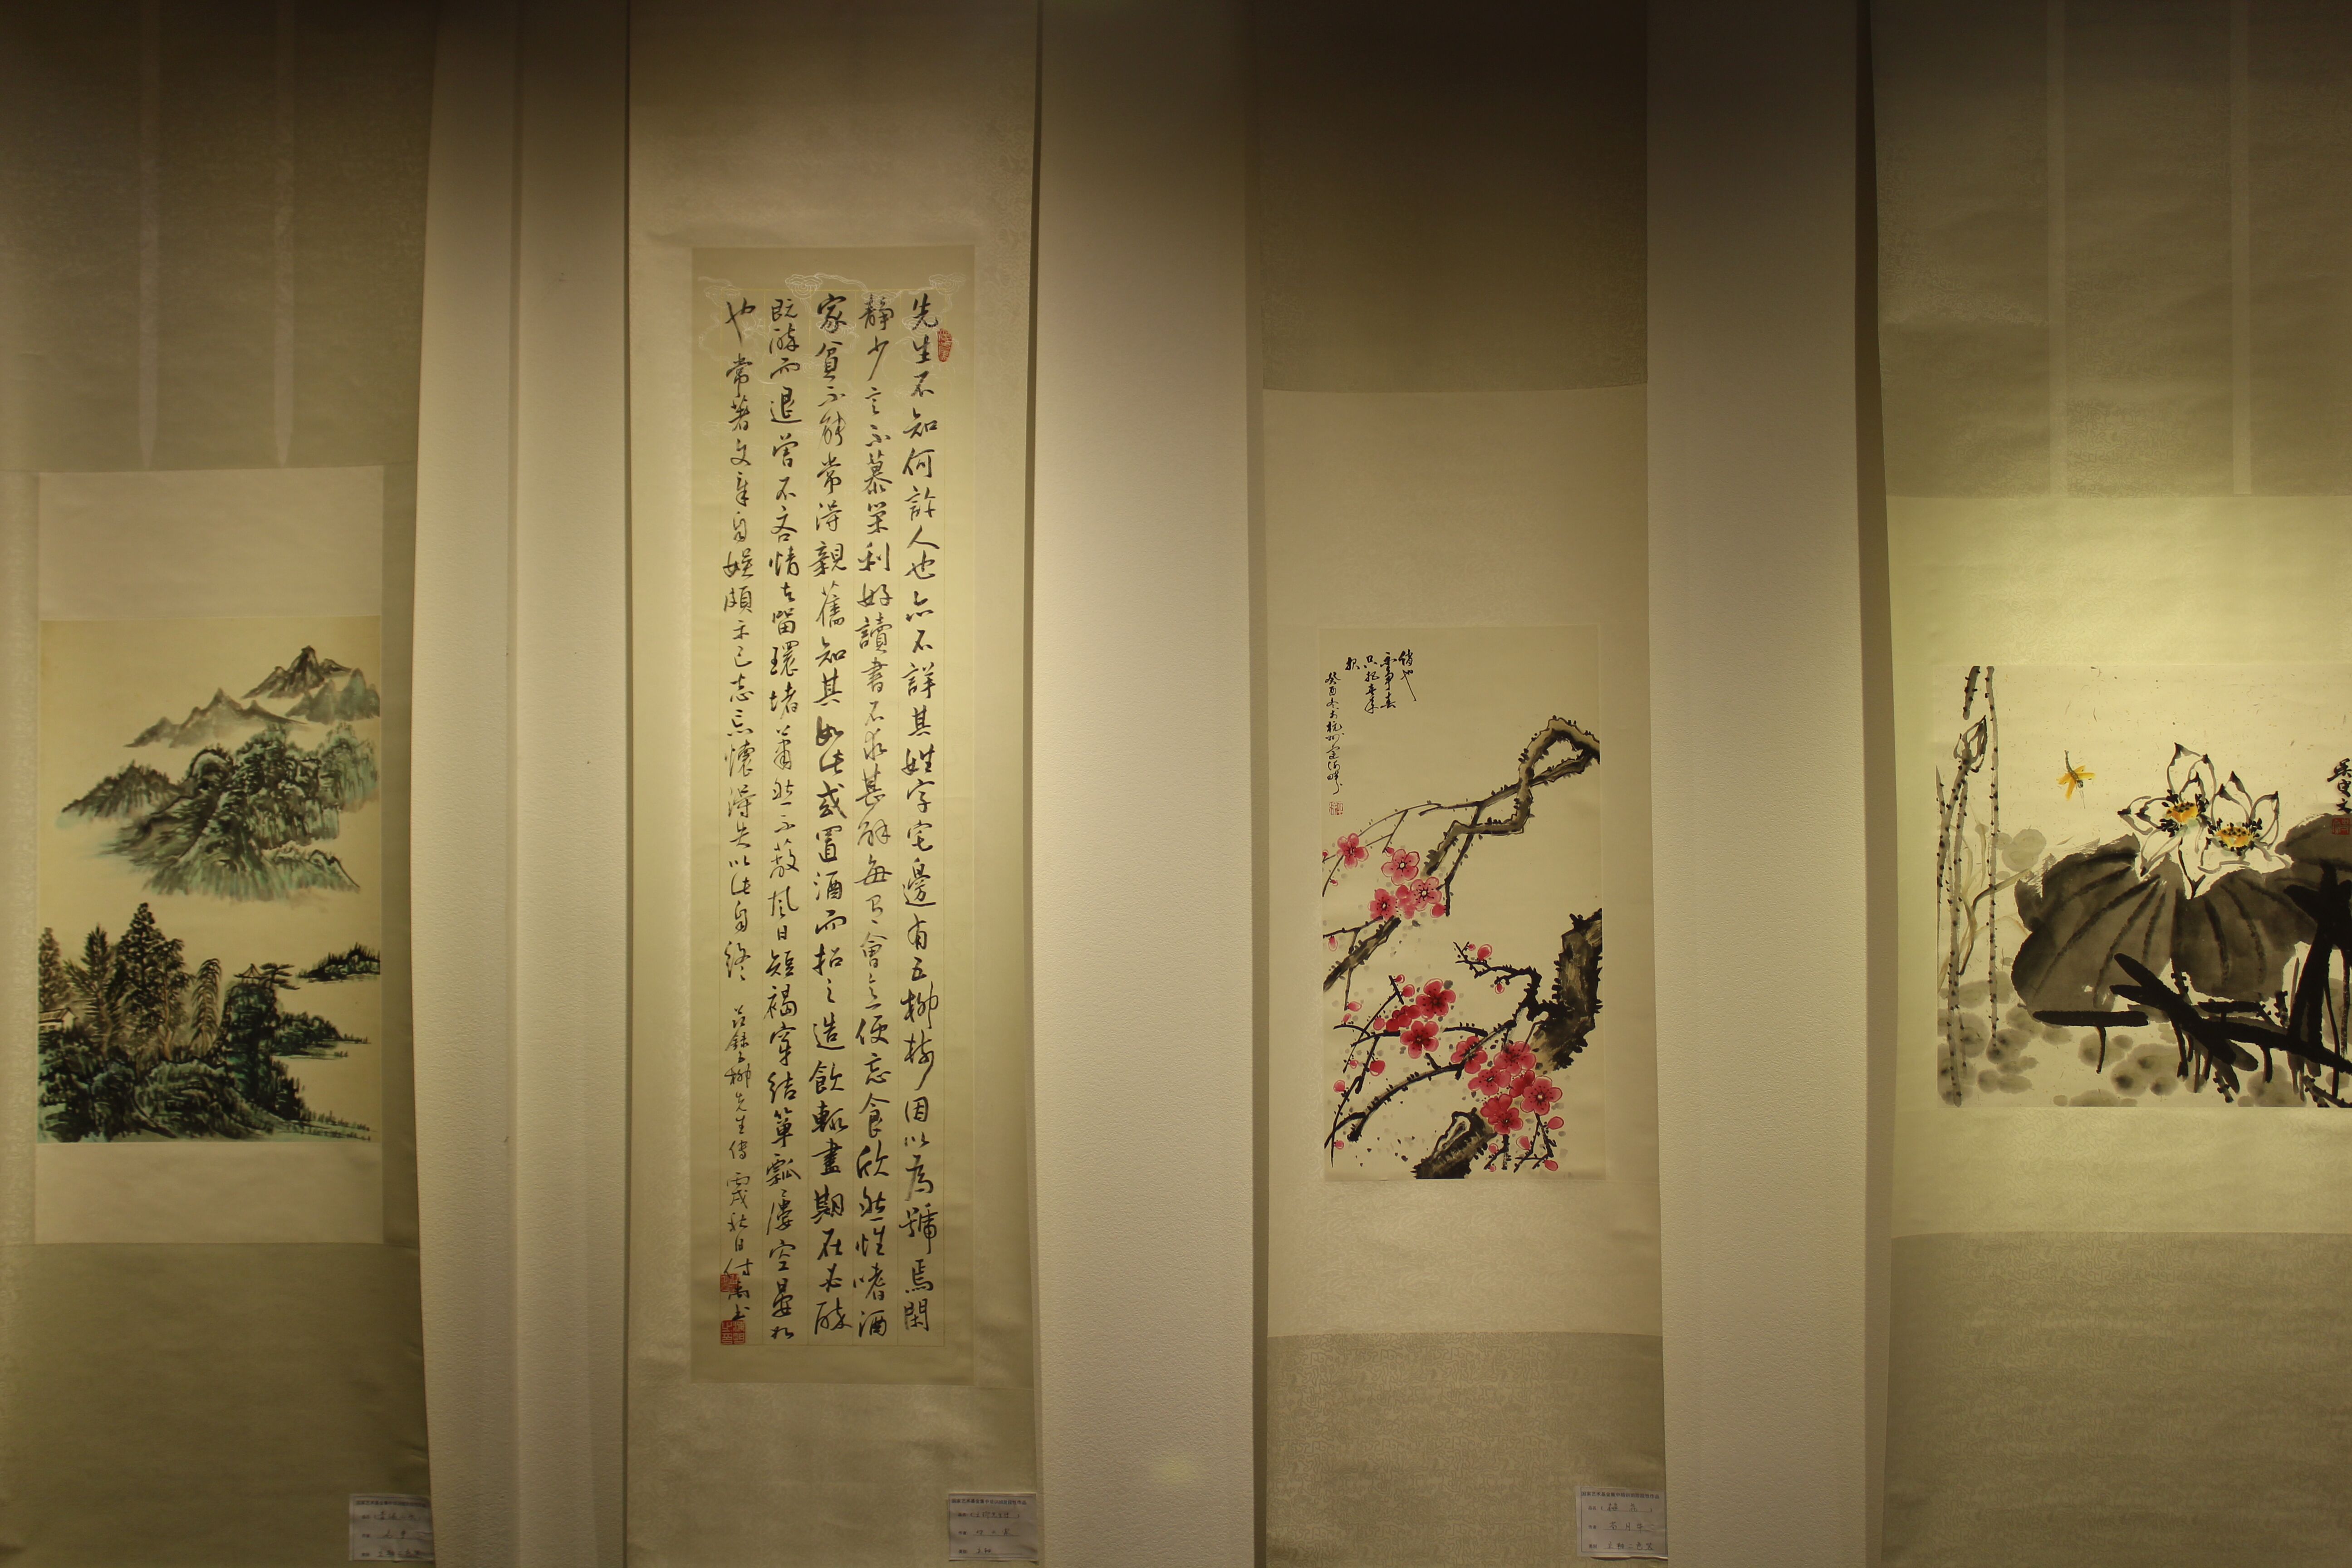 先生不知何許人也亦不詳其姓字宅邊有五柳樹因以為號焉閑
靜少言不慕榮利好讀書不求甚解每有會意便忘食欣然性嗜酒
家貧不能常得親舊知其如此或置酒而招之造飲輒盡期在必醉
既醉而退曾不吝情去留環堵蕭然不蔽風日短褐穿結簞瓢屢空晏如
也常著文章自娛頗示己志忘懷得失以此自終
五柳先生傳 丙戌秋日
俏也
不爭春
只把春來
報
癸酉冬於杭州